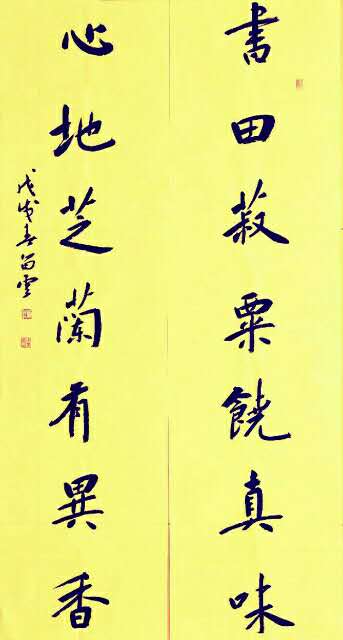 書田菽粟饒真味
心地芝蘭有異香
戊戌春苗雲